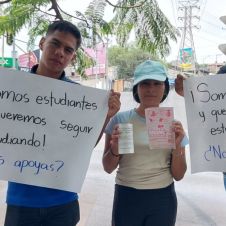 omos estudiantes
queremos seguir
udiando!
s apoyas?
¡Somo
y que
estu
¿No